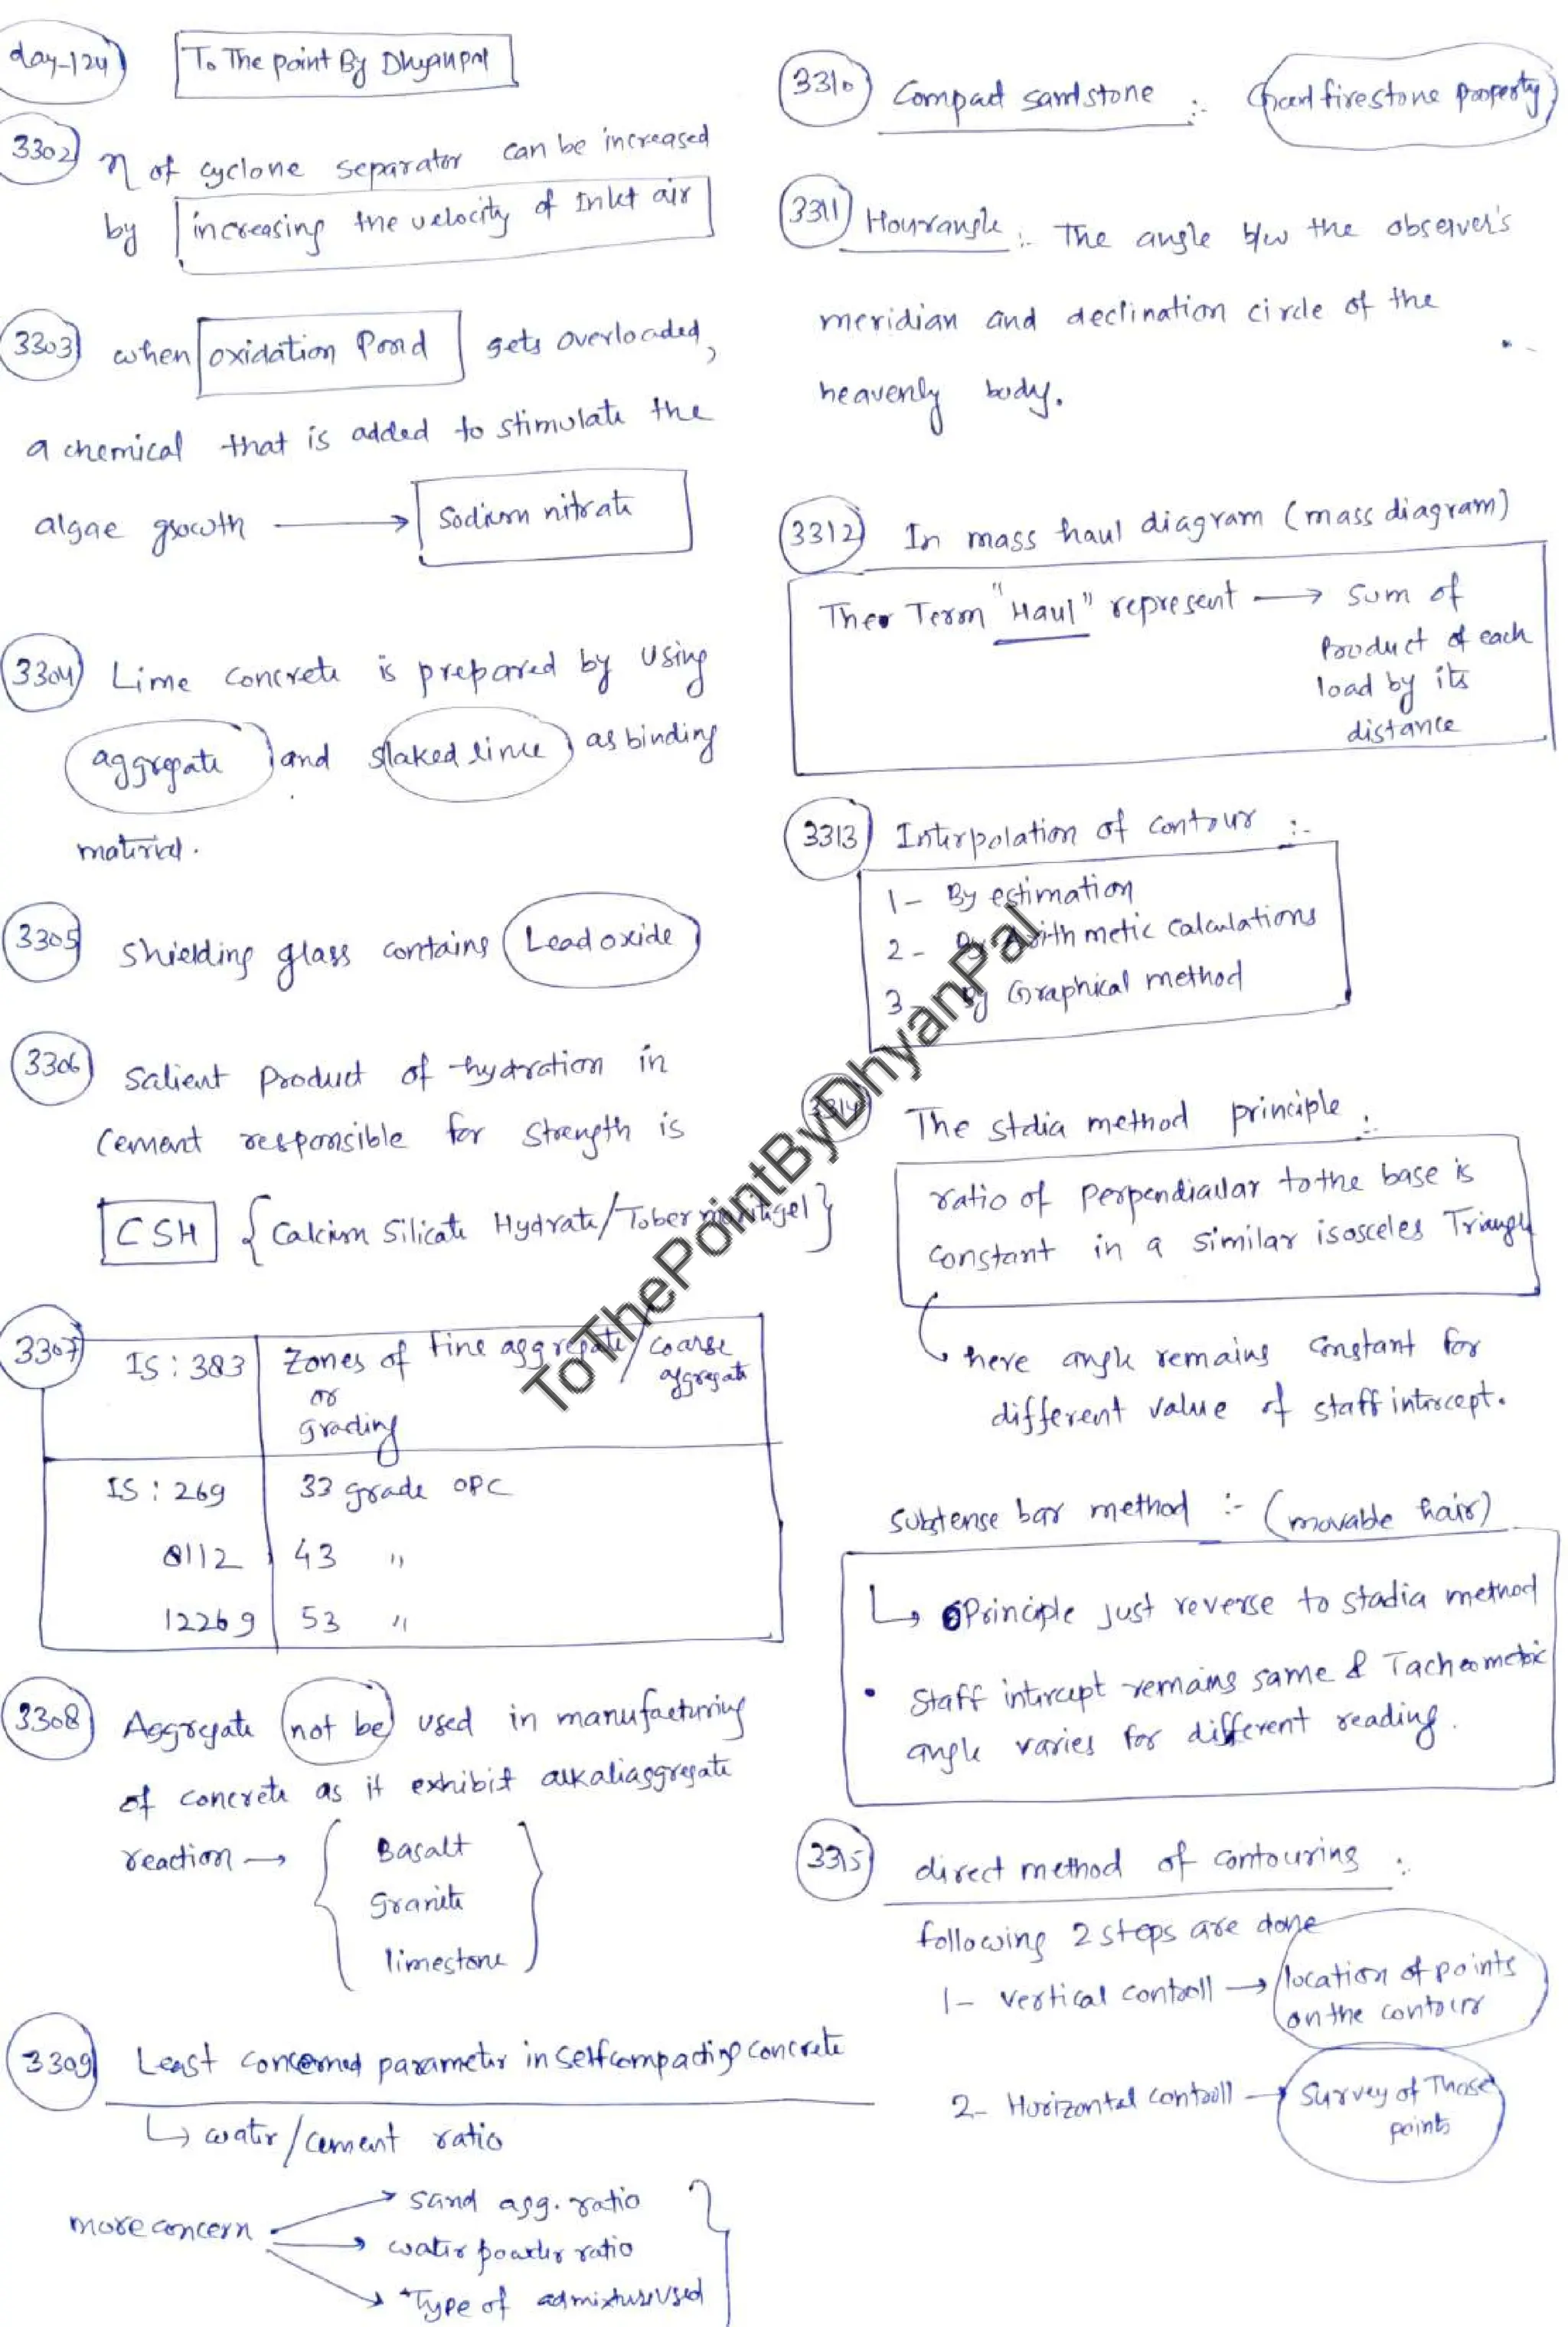 day-124
To The point By Dhyanpal
3302
η of cyclone separator can be increased
by increasing the velocity of Inlet air
3303
when oxidation Pond gets overloaded,
a chemical that is added to stimulate the
algae growth → Sodium nitrate
3304
Lime concrete is prepared by using
aggregate and slaked lime as binding
material.
3305
Shielding glass contains Lead oxide
3306
Salient Product of hydration in
Cement responsible for Strength is
CSH {Calcium Silicate Hydrate/Tobermoritigel}
3307
IS : 383 Zones of fine aggregate/coarse
or aggregate
grading
IS : 269 33 grade OPC
8112 43 "
12269 53 "
3308
Aggregate not be used in manufacturing
of concrete as it exhibit alkaliaggregate
reaction → { Basalt
Granite
limestone }
3309
Least concerned parameter in selfcompacting concrete
↳ water/cement ratio
more concern → sand agg. ratio
→ water powder ratio
→ Type of admixture used
3310
Compact sandstone :- Good firestone property
3311
Hourangle :- The angle b/w the observer's
meridian and declination circle of the
heavenly body.
3312
In mass haul diagram (mass diagram)
The Term "Haul" represent → sum of
Product of each
load by its
distance
3313
Interpolation of contour :-
1- By estimation
2- By Arithmetic calculations
3- By Graphical method
3314
The stdia method principle :-
ratio of perpendicular to the base is
constant in a similar isosceles Triangle
↳ here angle remains constant for
different value of staff intercept.
Subtense bar method :- (movable hair)
↳ Principle just reverse to stadia method
• Staff intercept remains same & Tacheometric
angle varies for different reading.
3315
direct method of contouring :-
following 2 steps are done
1- vertical controll → location of points
on the contour
2- Horizontal controll → Survey of Those
points
ToThePointByDhyanPal